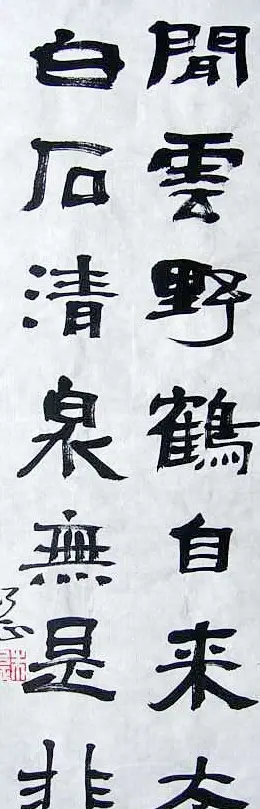 閒雲野鶴自来去
白石清泉無是非